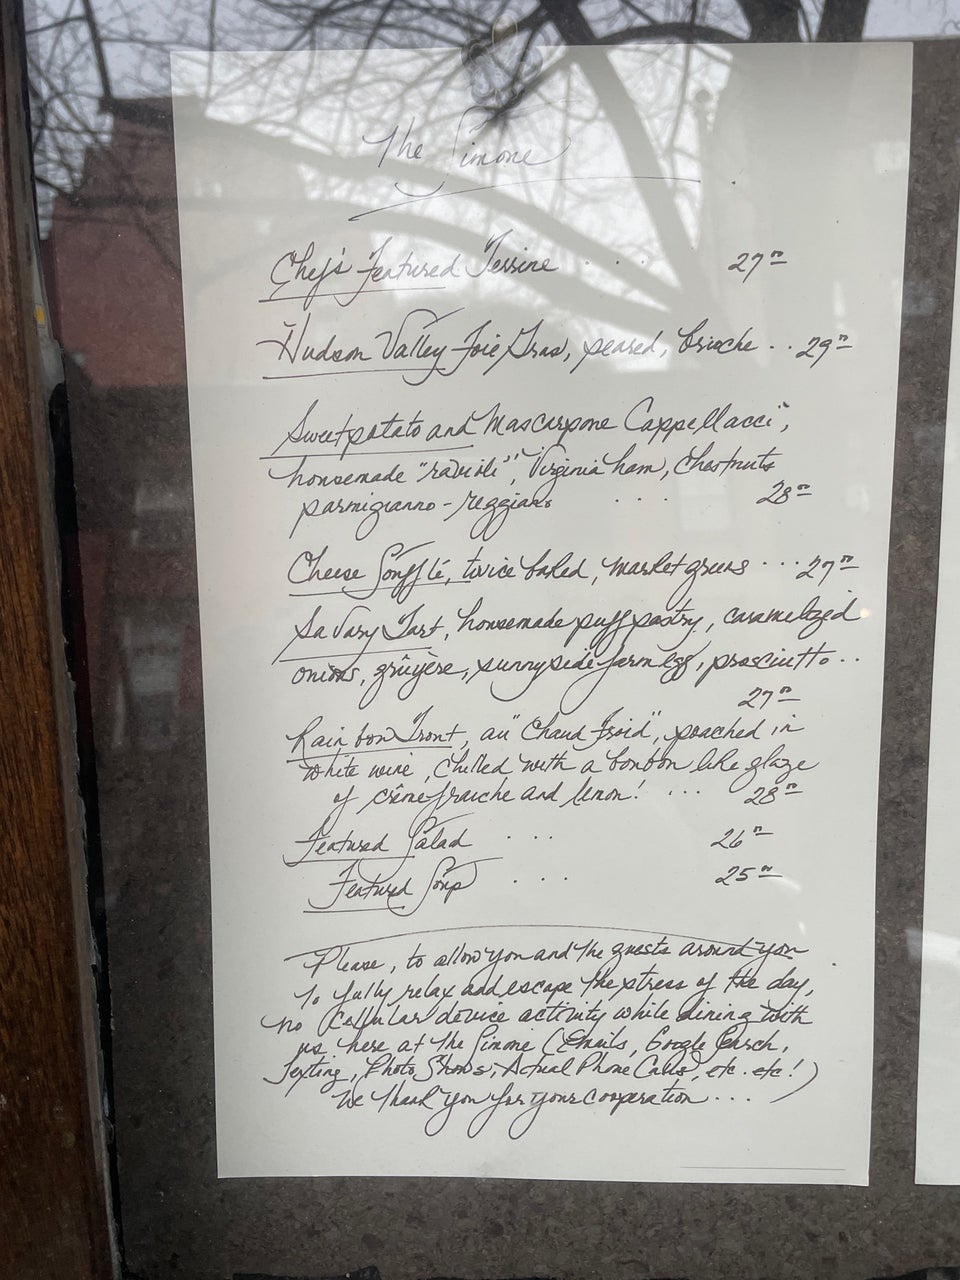 The Simone
Chef's Featured Terrine . . . 27⁰⁰
Hudson Valley Foie Gras, seared, brioche . . 29⁰⁰
Sweet potato and Mascarpone Cappellacci,
homemade "ravioli", Virginia ham, chestnuts
parmigianno-reggiano . . . 28⁰⁰
Cheese Soufflé, twice baked, market greens . . . 27⁰⁰
Savory Tart, homemade puff pastry, caramelized
onions, grüyère, sunnyside farm egg, prosciutto . .
27⁰⁰
Rainbow Trout, au "Chaud Froid", poached in
white wine, chilled with a bonbon like glaze
of crème fraiche and lemon! . . . 28⁰⁰
Featured Salad . . . 26⁰⁰
Featured Soup . . . 25⁰⁰
Please, to allow you and the guests around you
to fully relax and escape the stress of the day,
no cellular device activity while dining with
us here at the Simone (Emails, Google Search,
Texting, Photo Shows, Actual Phone Calls, etc. etc!)
We thank you for your cooperation . . . .